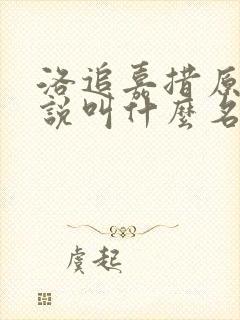 洛追嘉措原
說叫什麼名
虞起